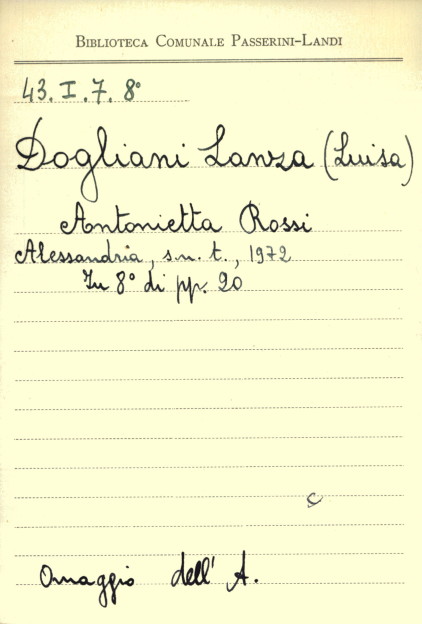 BIBLIOTECA COMUNALE PASSERINI-LANDI
43. I. 7. 8°
Dogliani Lanza (Luisa)
Antonietta Rossi
Alessandria, s.n. t., 1972
In 8° di pp. 20
C
Omaggio dell' A.